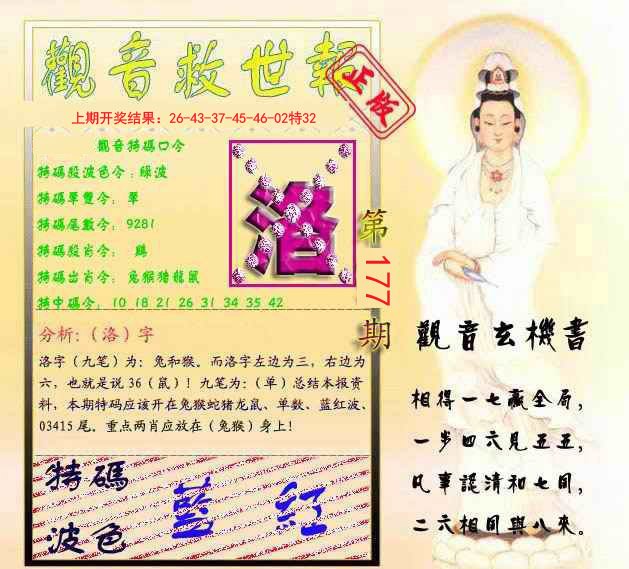 觀音救世報
正版
上期开奖结果：26-43-37-45-46-02特32
觀音特碼口令
特碼殺波色令：綠波
特碼單雙令：單
特碼尾數令：9281
特碼殺肖令：鷄
特碼出肖令：兔猴猪龍鼠
特中碼令：10 18 21 26 31 34 35 42
洛
第177期
分析:（洛）字
洛字（九笔）为：兔和猴。而洛字左边为三，右边为
六，也就是说 36（鼠）！九笔为：（单）总结本报资
料，本期特码应该开在兔猴蛇猪龙鼠、单数、蓝红波、
03415 尾。重点两肖应放在（兔猴）身上！
特碼
波色
藍 紅
觀音玄機書
相得一七贏全局，
一步四六見五五，
凡事認清和七同，
二六相同與八來。